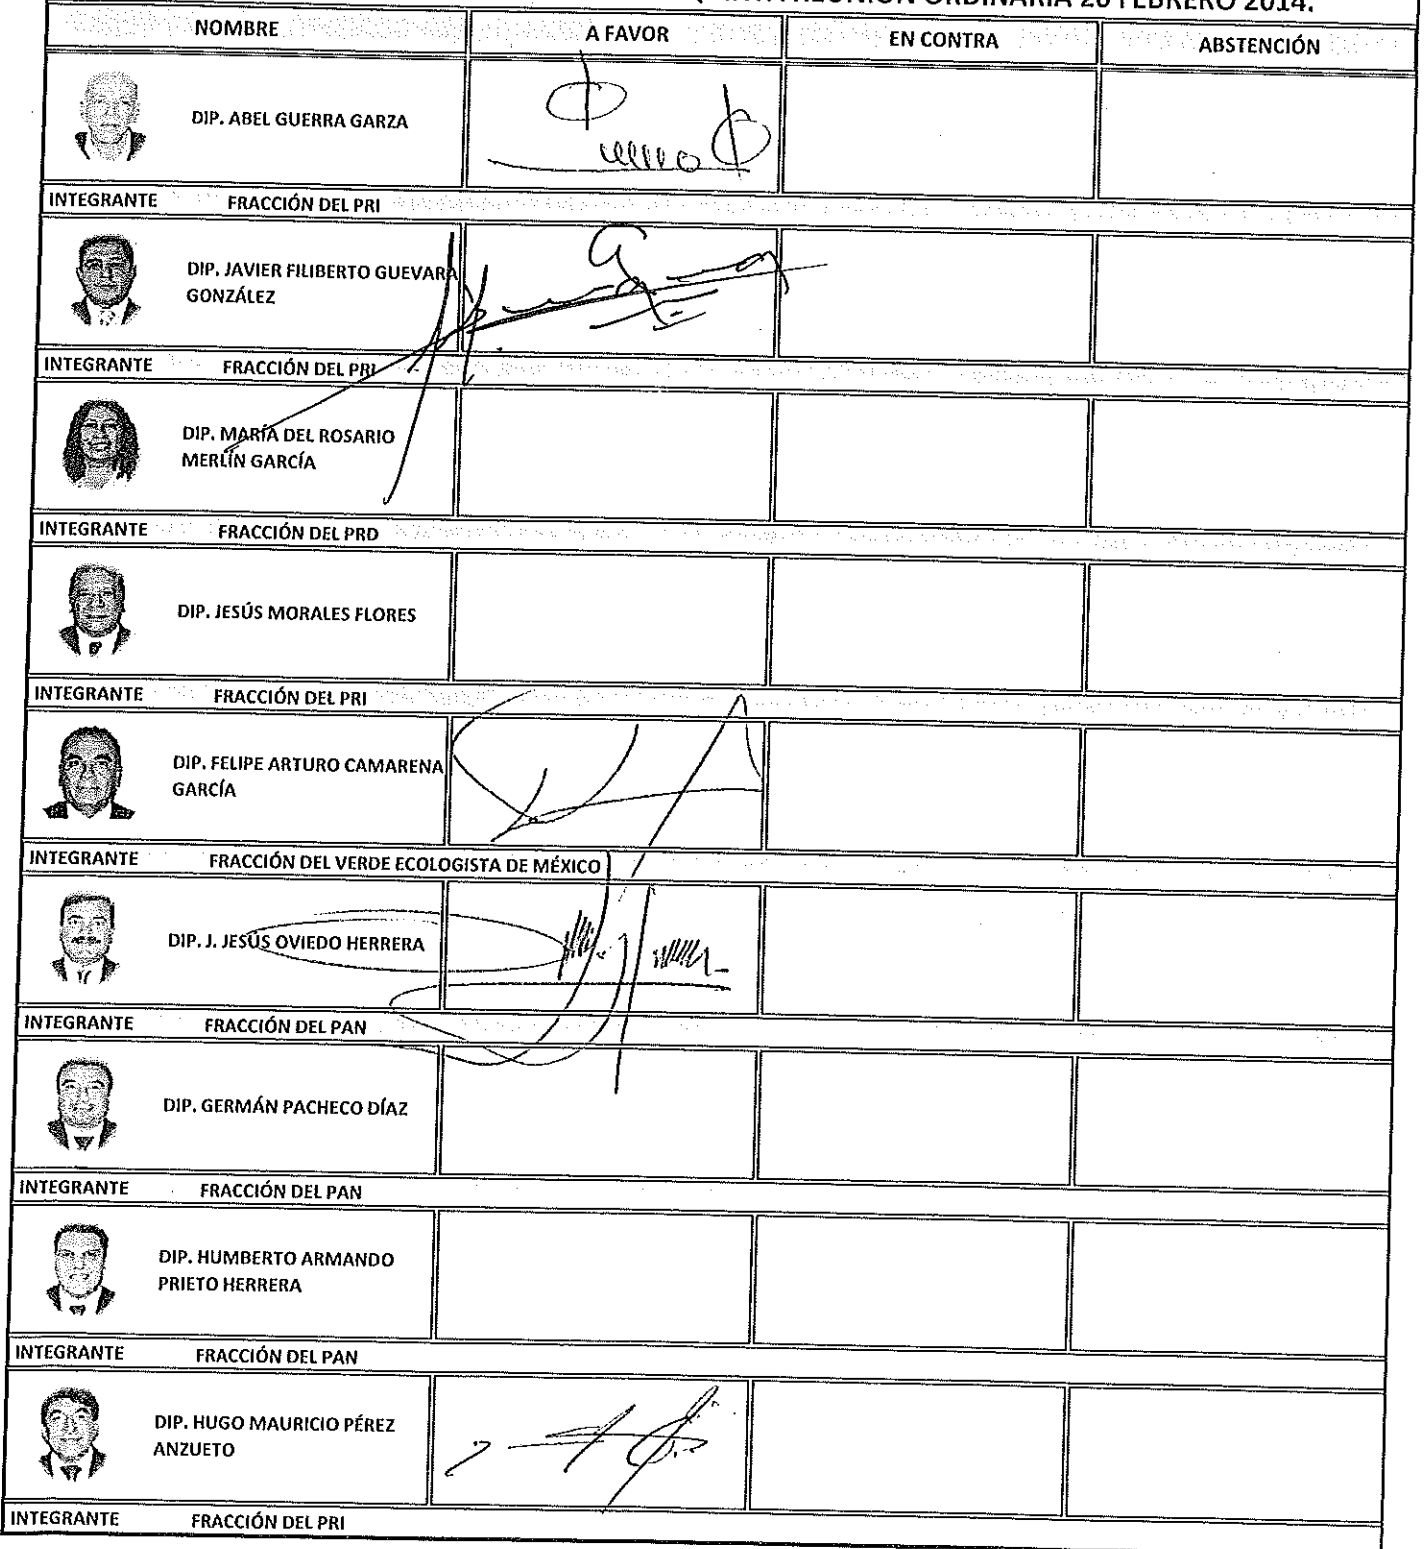 REUNIÓN ORDINARIA 26 FEBRERO 2014.
NOMBRE A FAVOR EN CONTRA ABSTENCIÓN
DIP. ABEL GUERRA GARZA
INTEGRANTE FRACCIÓN DEL PRI
DIP. JAVIER FILIBERTO GUEVARA
GONZÁLEZ
INTEGRANTE FRACCIÓN DEL PRI
DIP. MARÍA DEL ROSARIO
MERLÍN GARCÍA
INTEGRANTE FRACCIÓN DEL PRD
DIP. JESÚS MORALES FLORES
INTEGRANTE FRACCIÓN DEL PRI
DIP. FELIPE ARTURO CAMARENA
GARCÍA
INTEGRANTE FRACCIÓN DEL VERDE ECOLOGISTA DE MÉXICO
DIP. J. JESÚS OVIEDO HERRERA
INTEGRANTE FRACCIÓN DEL PAN
DIP. GERMÁN PACHECO DÍAZ
INTEGRANTE FRACCIÓN DEL PAN
DIP. HUMBERTO ARMANDO
PRIETO HERRERA
INTEGRANTE FRACCIÓN DEL PAN
DIP. HUGO MAURICIO PÉREZ
ANZUETO
INTEGRANTE FRACCIÓN DEL PRI